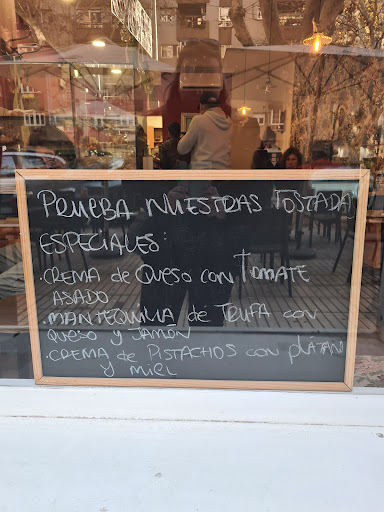 PRUEBA NUESTRAS TOSTADA
ESPECIALES:
·CREMA de QUESO con TOMATE
ASADO
·MANTEQUILLA de TRUFA con
QUESO y JAMÓN
·CREMA de PISTACHOS con PLATAN
y MIEL